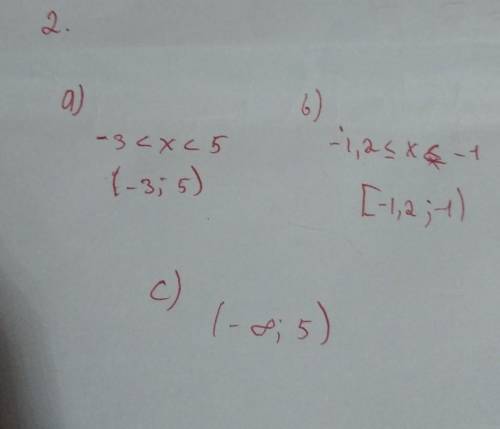 2.
a)
-3 < x < 5
(-3; 5)
b)
-1,2 ≤ x < -1
[-1,2; -1)
c)
(-∞; 5)